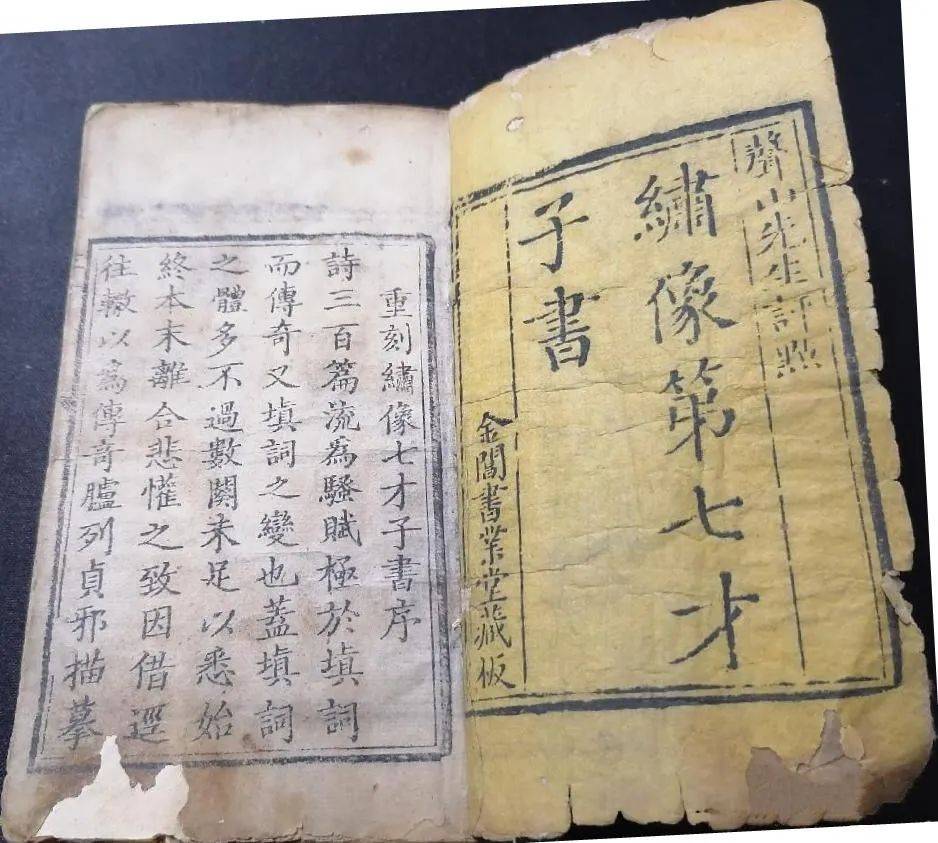 聲山先生評㸃
繡像第七才
子書
金閶書業堂藏板
重刻繡像七才子書序
詩三百篇流爲騷賦極於填詞
而傳奇又填詞之變也蓋填詞
之體多不過數闋未足以悉始
終本末離合悲懽之致因借逕
往轍以爲傳奇臚列貞邪描摹